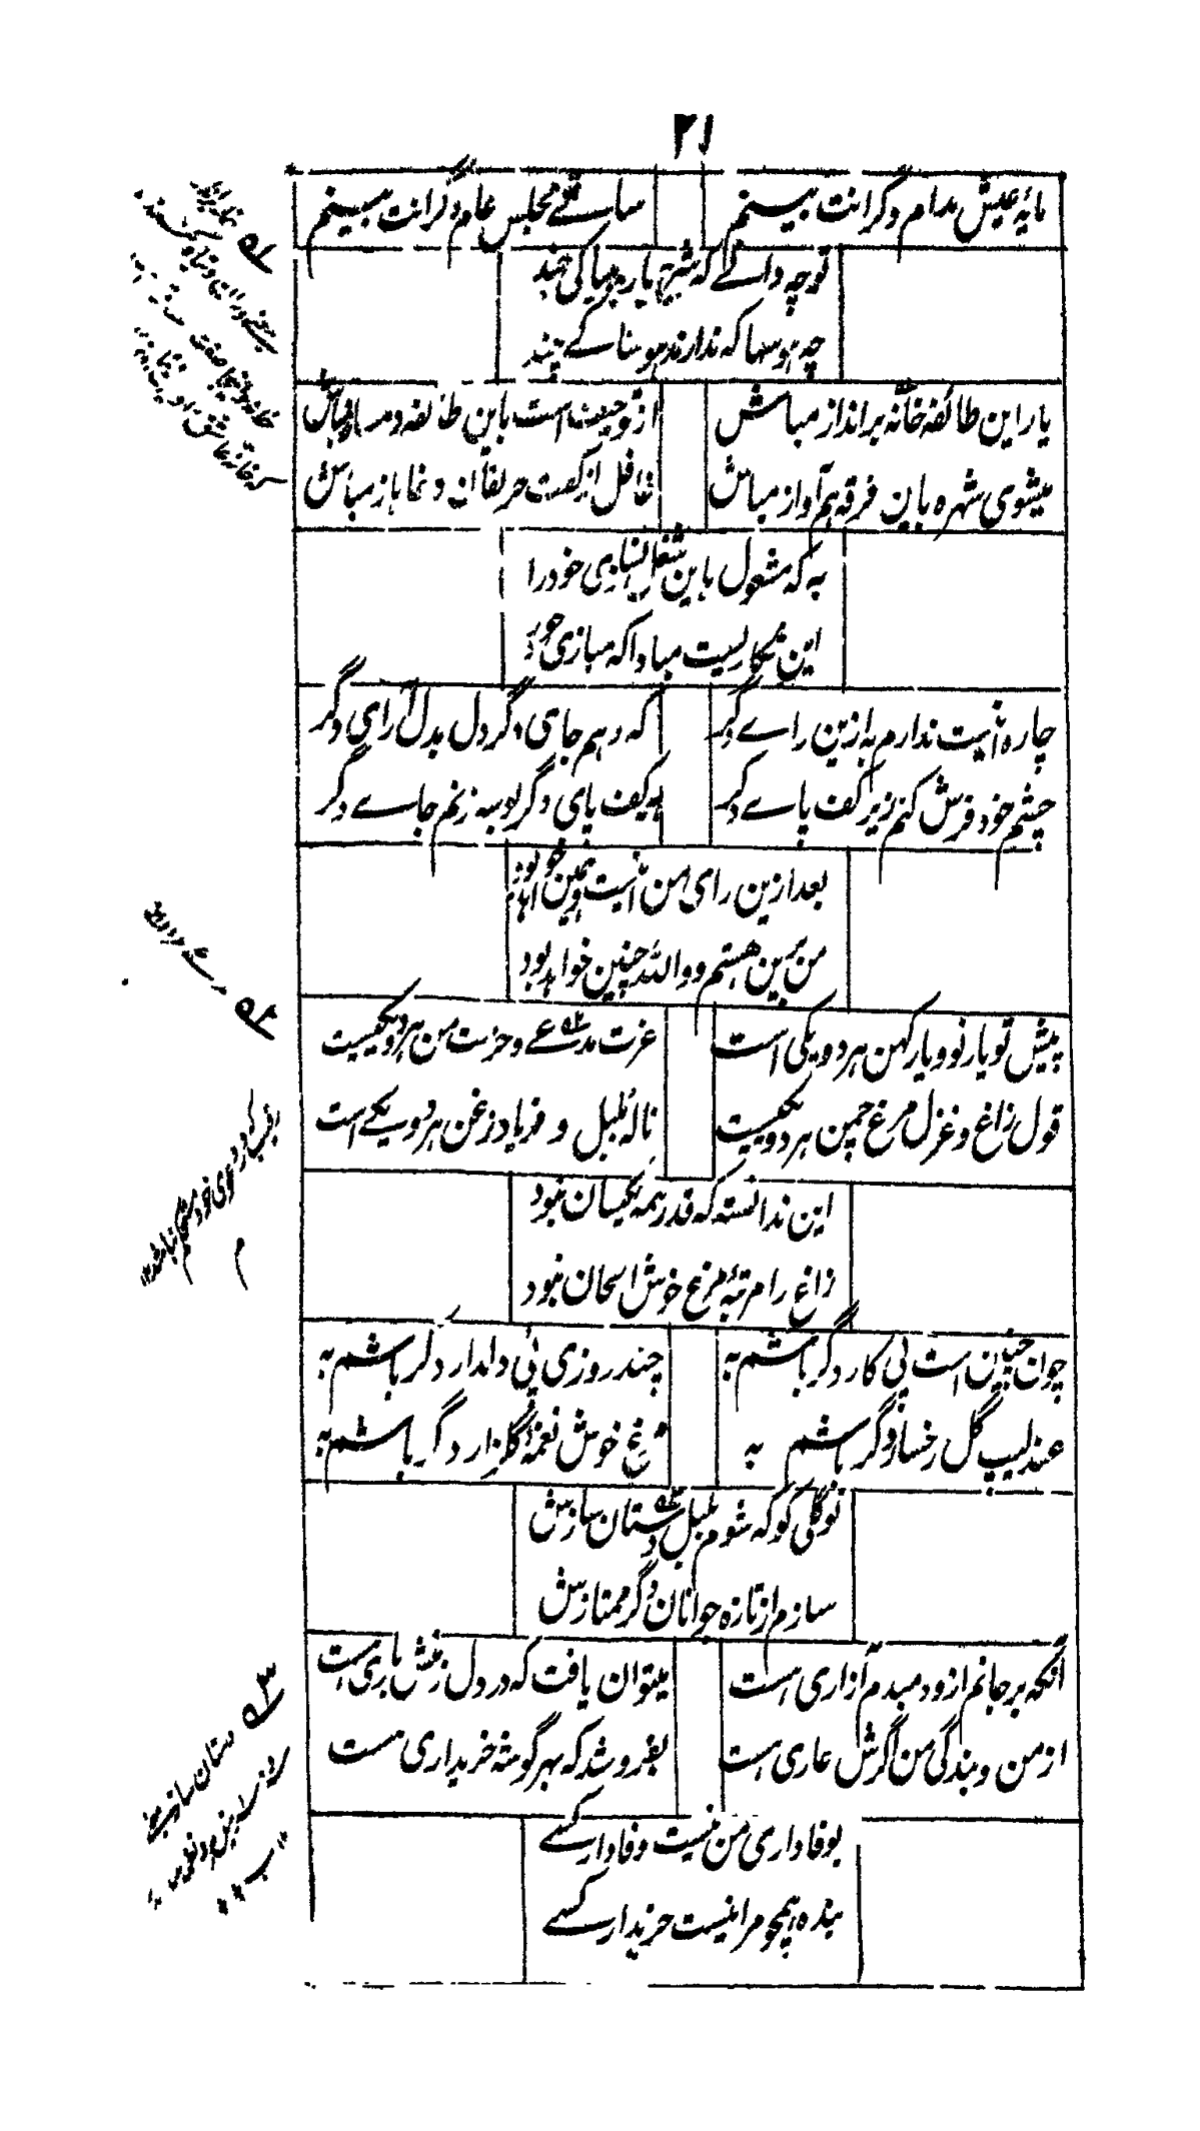 ۲۱
مایهٔ عیش مدام دگرانت بینم
ساقے مجلس عام دگرانت بینم
تو چه دانے که شیخ یار چه بیباکی چند
چه هوسها که ندارند هوسناکے چند
یار این طائفه خانه برانداز مباش
از تو حیف است باین طائفه دمساز مباش
میشوی شهره باین فرقه هم آواز مباش
غافل از لعب حریفان دغا باز مباش
به که مشغول باین شغل نسازی خود را
این نه کاریست مبادا که ببازی خود را
چاره اینست ندارم به ازین راے دگر
که دهم جای دگر دل بدل آرای دگر
چشم خود فرش کنم زیر کف پاے دگر
بر کف پای دگر بوسه زنم جاے دگر
بعد ازین رای من اینست و همین خواهد بود
من برین هستم و والله چنین خواهد بود
پیش تو یار نو و یار کهن هر دو یکی است
عزت مدعے و حرمت من هر دو یکیست
قول زاغ و غزل مرغ چمن هر دو یکیست
نالهٔ بلبل و فریاد زغن هر دو یکے است
این ندانسته که قدر همه یکسان نبود
زاغ را مرتبهٔ مرغ خوش الحان نبود
چون چنین است پی کار دگر باشم به
چند روزی پی دلدار دگر باشم به
عندلیب گل رخسار دگر باشم به
مرغ خوش نغمهٔ گلزار دگر باشم به
نو گلی کو که شوم بلبل دستان سازش
سازم از تازه جوانان دگر ممتازش
آنکه بر جانم ازو دمبدم آزاری هست
میتوان یافت که در دل زمنش باری هست
از من و بندگی من اگرش عاری هست
بفروشد که بهر گوشه خریداری هست
بوفاداری من نیست وفادار کسے
بنده همچو مرا نیست خریدار کسے
رقیب که در دعوی خود مستحکم نباشد
م
۳ دستان ساز